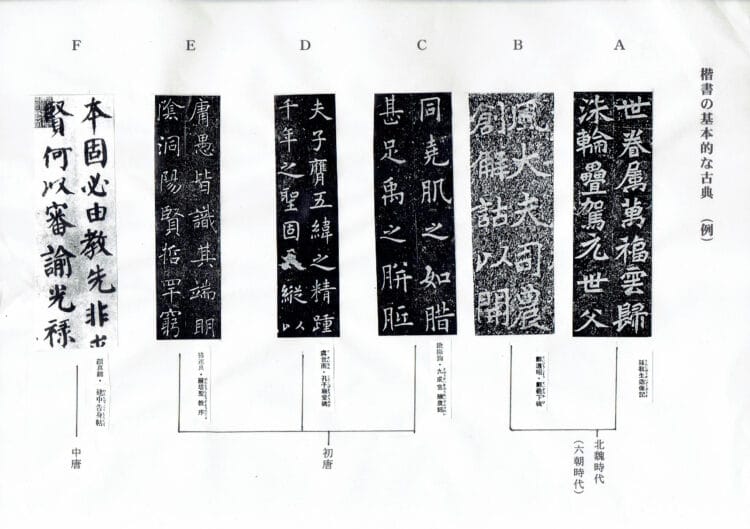 楷書の基本的な古典 (例)
A
世眷属萬福雲歸
洙輪疊駕元世父
孫秋生造像記
B
風大夫司農
創解詁以開
鄭道昭・鄭羲下碑
北魏時代
(六朝時代)
C
同堯肌之如腊
甚足禹之胼胝
欧陽詢・九成宮醴泉銘
D
夫子膺五緯之精踵
千年之聖固天縱以
虞世南・孔子廟堂碑
E
庸愚皆識其端明
陰洞陽賢哲罕窮
褚遂良・雁塔聖教序
初唐
F
本固必由教先非
賢何以審諭光禄
顔真卿・建中告身帖
中唐